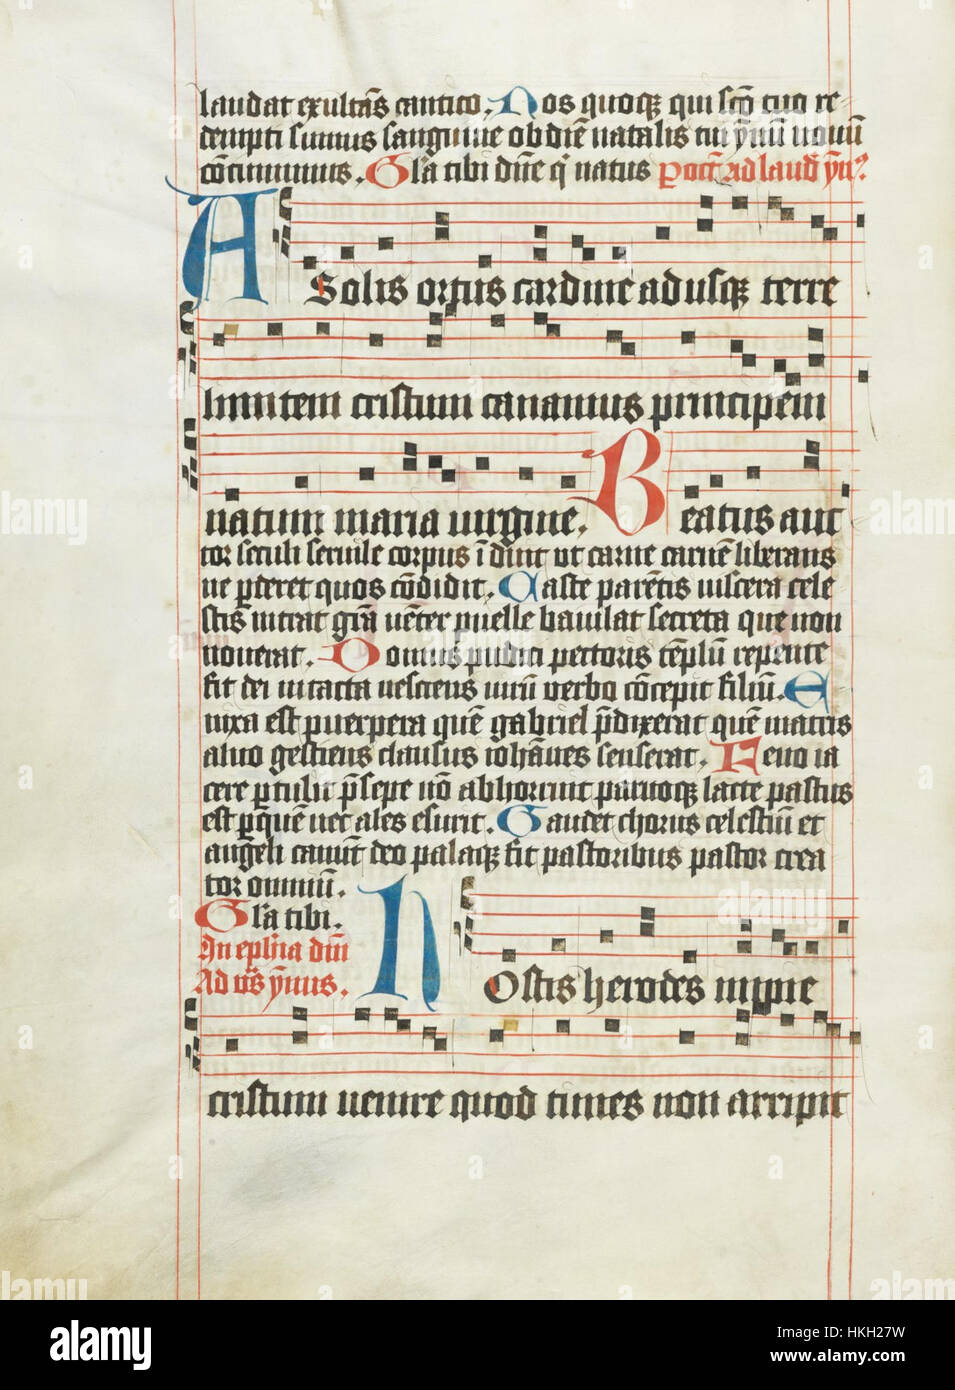 laudat exultās cantico. Nos quoq₃ qui scō tuo re-
dempti sumus sanguine ob diē natalis tui ymū novū
cōcinimus. Glā tibi dn̄e q̄ natus
A Solis ortus cardine adusq₃ terre
limitem cristum canamus principem
natum maria virgine. Beatus auc
tor seculi servile corpus īduit ut carne carnē liberans
ne pderet quos cōdidit. Caste parētis viscera cele
stis intrat grā vēter puelle baiulat secreta que non
noverat. Domus pudici pectoris tēplū repente
fit dei intacta nesciens virū verbo cōcepit filiū. E
nixa est puerpera quē gabriel pdixerat quē matris
alvo gestiens clausus iohānes senserat. Feno ia
cere ptulit psepe nō abhorruit parvoq₃ lacte pastus
est p quē nec ales esurit. Gaudet chorus celestiū et
angeli canūt deo palāq₃ fit pastoribus pastor crea
tor omniū.
Glā tibi.
In ephīa dn̄i
Ad ymnus.
Hostis herodes impie
cristum venire quod times non arripit
alamy
Image ID: HKH27W
www.alamy.com